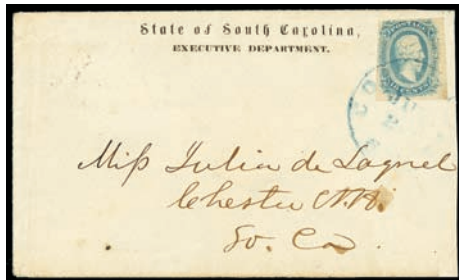 State of South Carolina,
EXECUTIVE DEPARTMENT.
Miſs Julia de Lagnel
Chester C.H.
So. Ca.